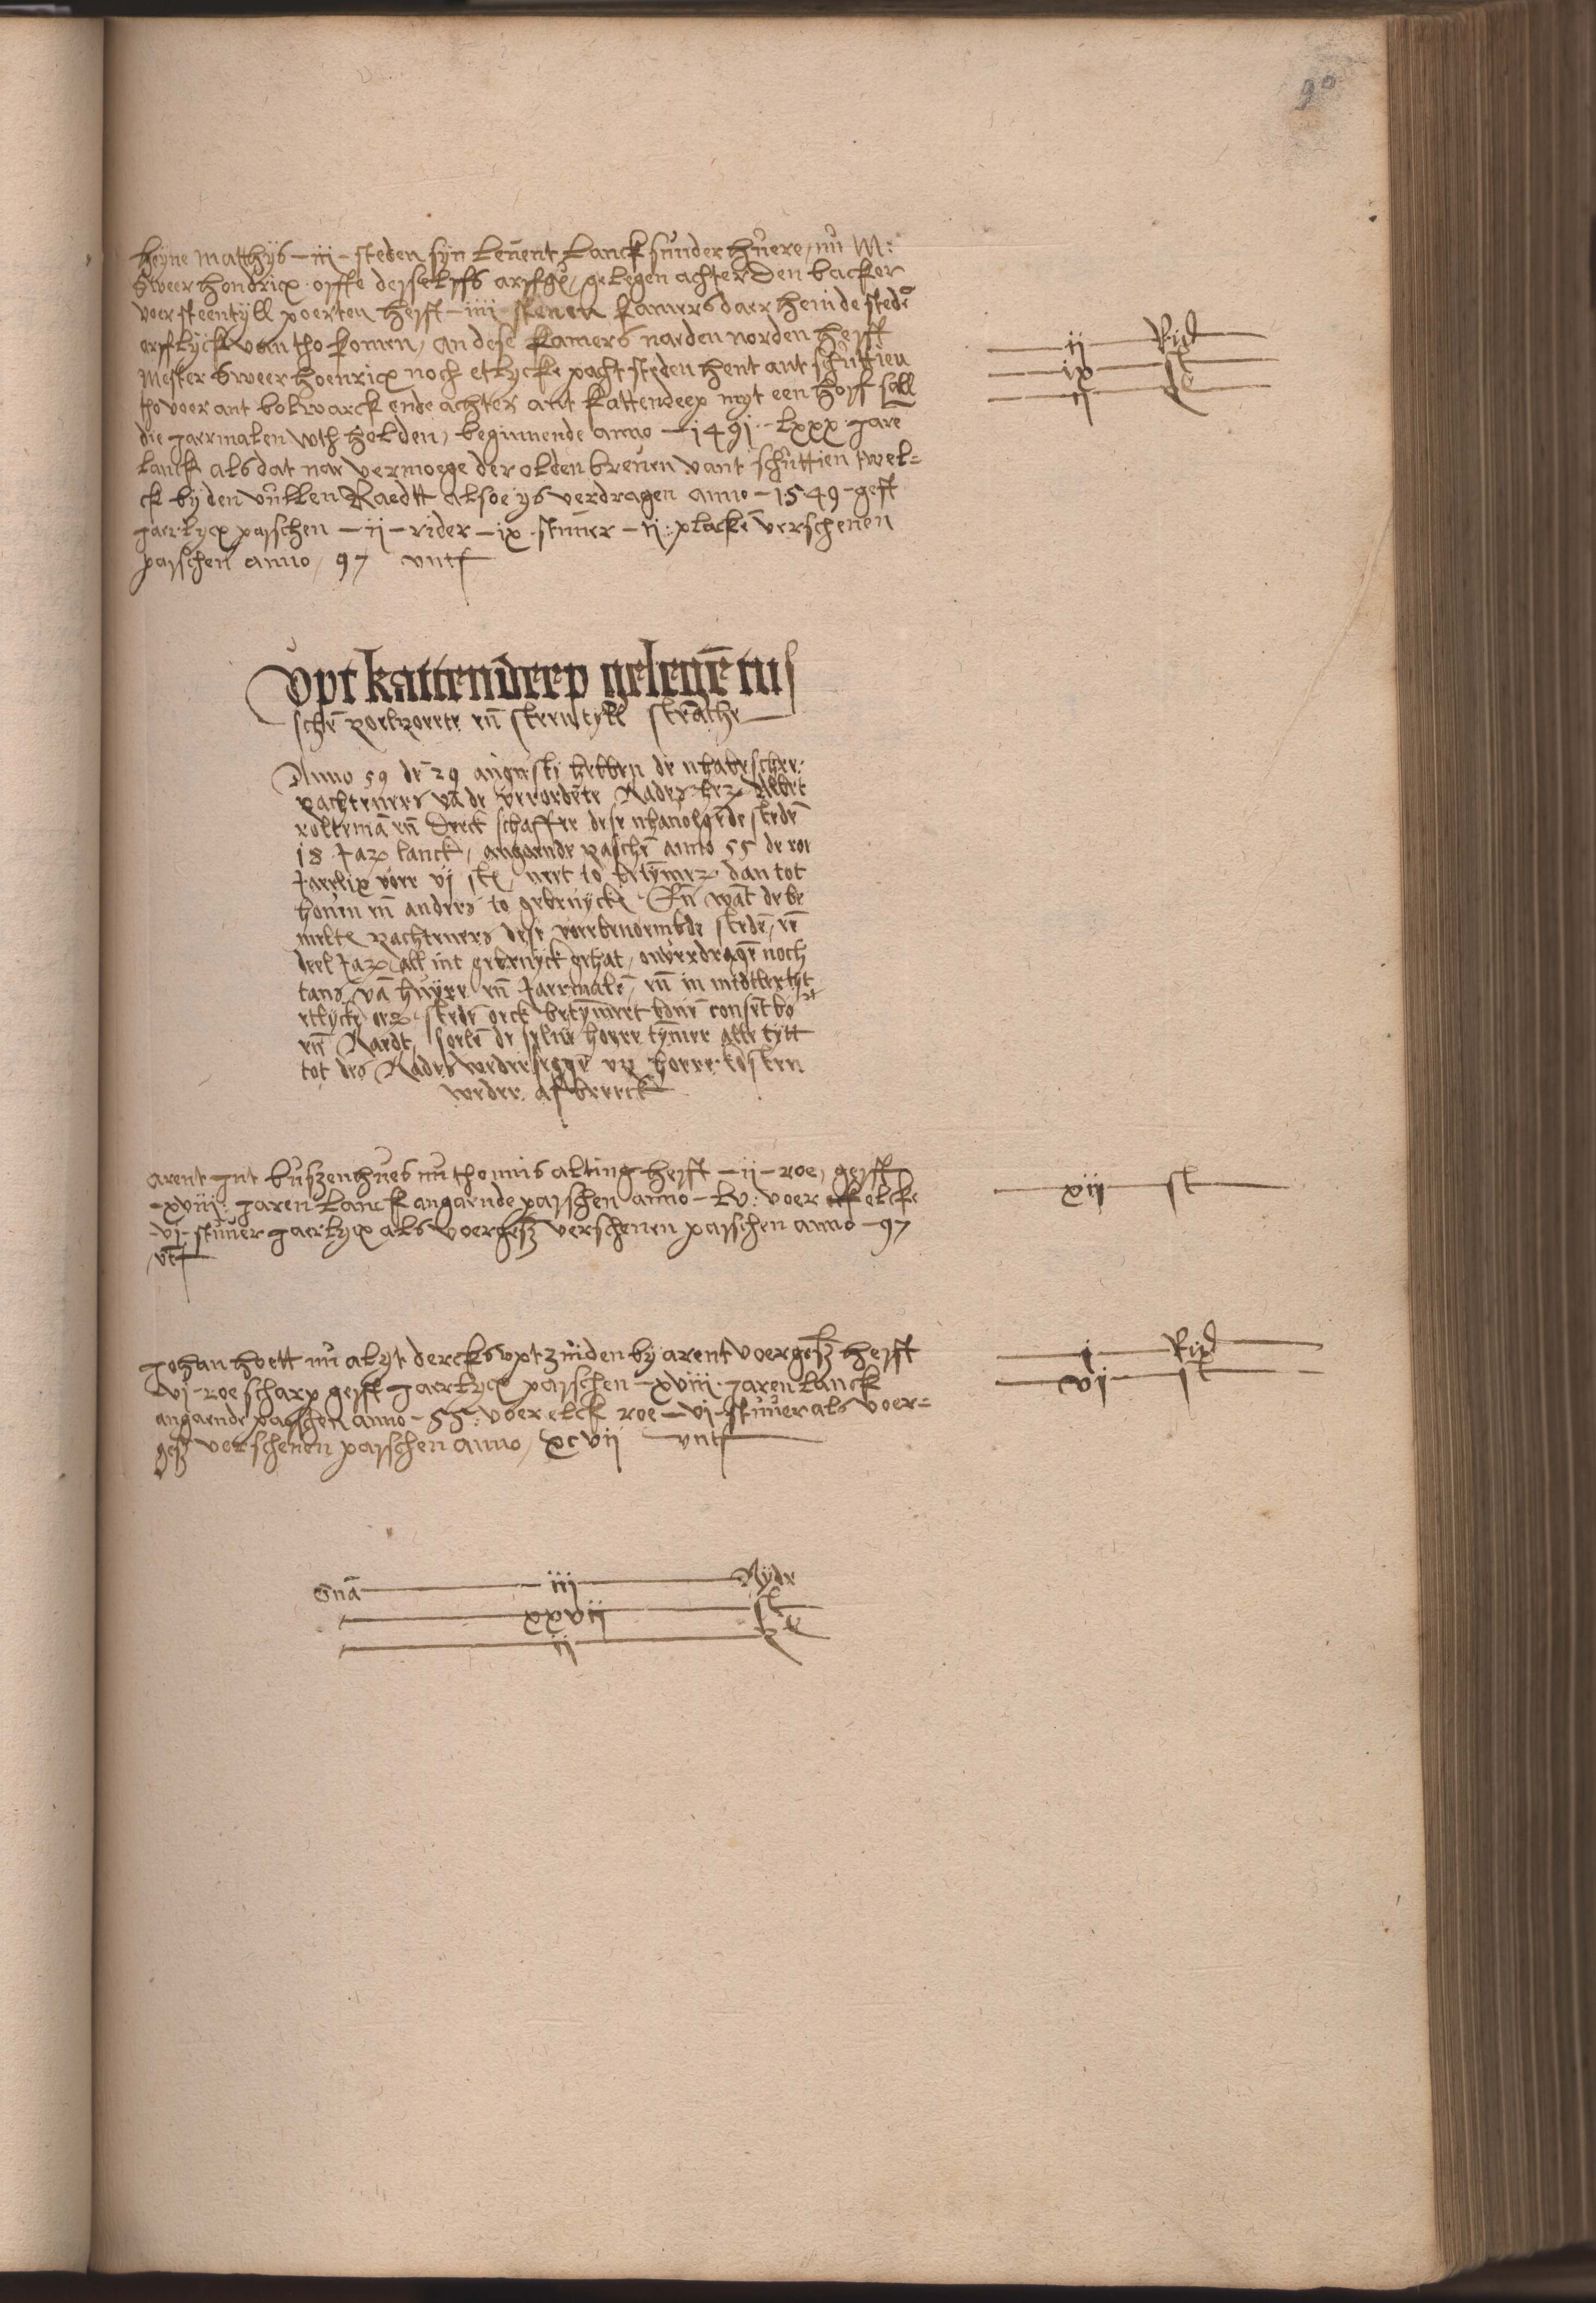 90
heyne Matthijs - iii - steden syn Leuent Lanck sunder huere / nu M:
Sweer Hendricx offte desselffs arffge / gelegen achter Den backer
voer steentyll poerten heefft - iiii - stenen kamers daer hem de stede
erfflyck van tho komen / an dese kamers naeden norden hefft
Mester Sweer hoenricx noch etlycke pacht steden hent ant schuttien
tho voer ant bolwarck ende achter ant kattendeep myt een hoff sall
die jaermalen wth holden / beginnende anno - 1491 - Lxxx jare
lanck als dat nae vermoege der olden breuen vant schuttien twel=
ck by den vullen Raedtt alsoe ys verdragen anno - 1549 - geft
jaerlycx paschen - ii - rider - ix - stuuer - ii: placke verschenen
paschen anno / 97 vntf
ii Rid
ix st
ii pl
Vpt kattendeep gelegē tus
schē poelpoerte eñ steentyll straethe
Anno 59 dē 29 augusti hebben de nhabeschr:
pachteners vā de verordēte Rades her Albert
roltemā eñ Derck schaffer dese nhauolgēde stedē
18 Jar lanck / angaende paschē anno 55 de roe
Jaerlix voer vj st / neet to betymer dan tot
houen eñ anders to gebruycke Eñ wāt de be
melte pachteners dese voerbenoembde stedē / eē
deel Jar all int gebruyck gehat / onuerdragē noch
tans vā huyre eñ Jaermalē / eñ in midtlertyt
etlycke er stedē oeck betymert bouē consēt bo
eñ Raedt / soelē de selue hoere tymer alle tytt
tot des Rades wedersegge vp hoere kosten
weder afbreeck
arent int buszenhues nu thonnis alting hefft - ii - roe / gefft
- xviii - jaren Lanck angaende paschen anno - Lv: voer elcke
- vj - stuuer jaerlycx als voergesz verschenen paschen anno - 97
vtf
xii st
johan hoett nu alyt dercks vpt zuiden by arent voergesz hefft
vj - roe scharp gefft jaerlycx paschen - xviii - jaren lanck
angaende paschen anno - 55: voer elck roe - vj - stuuer als voer=
gesz verschenen paschen anno / xcvii vntf
i Rid
vi st
Sūā iii Ryder
xxvii st
ii pl